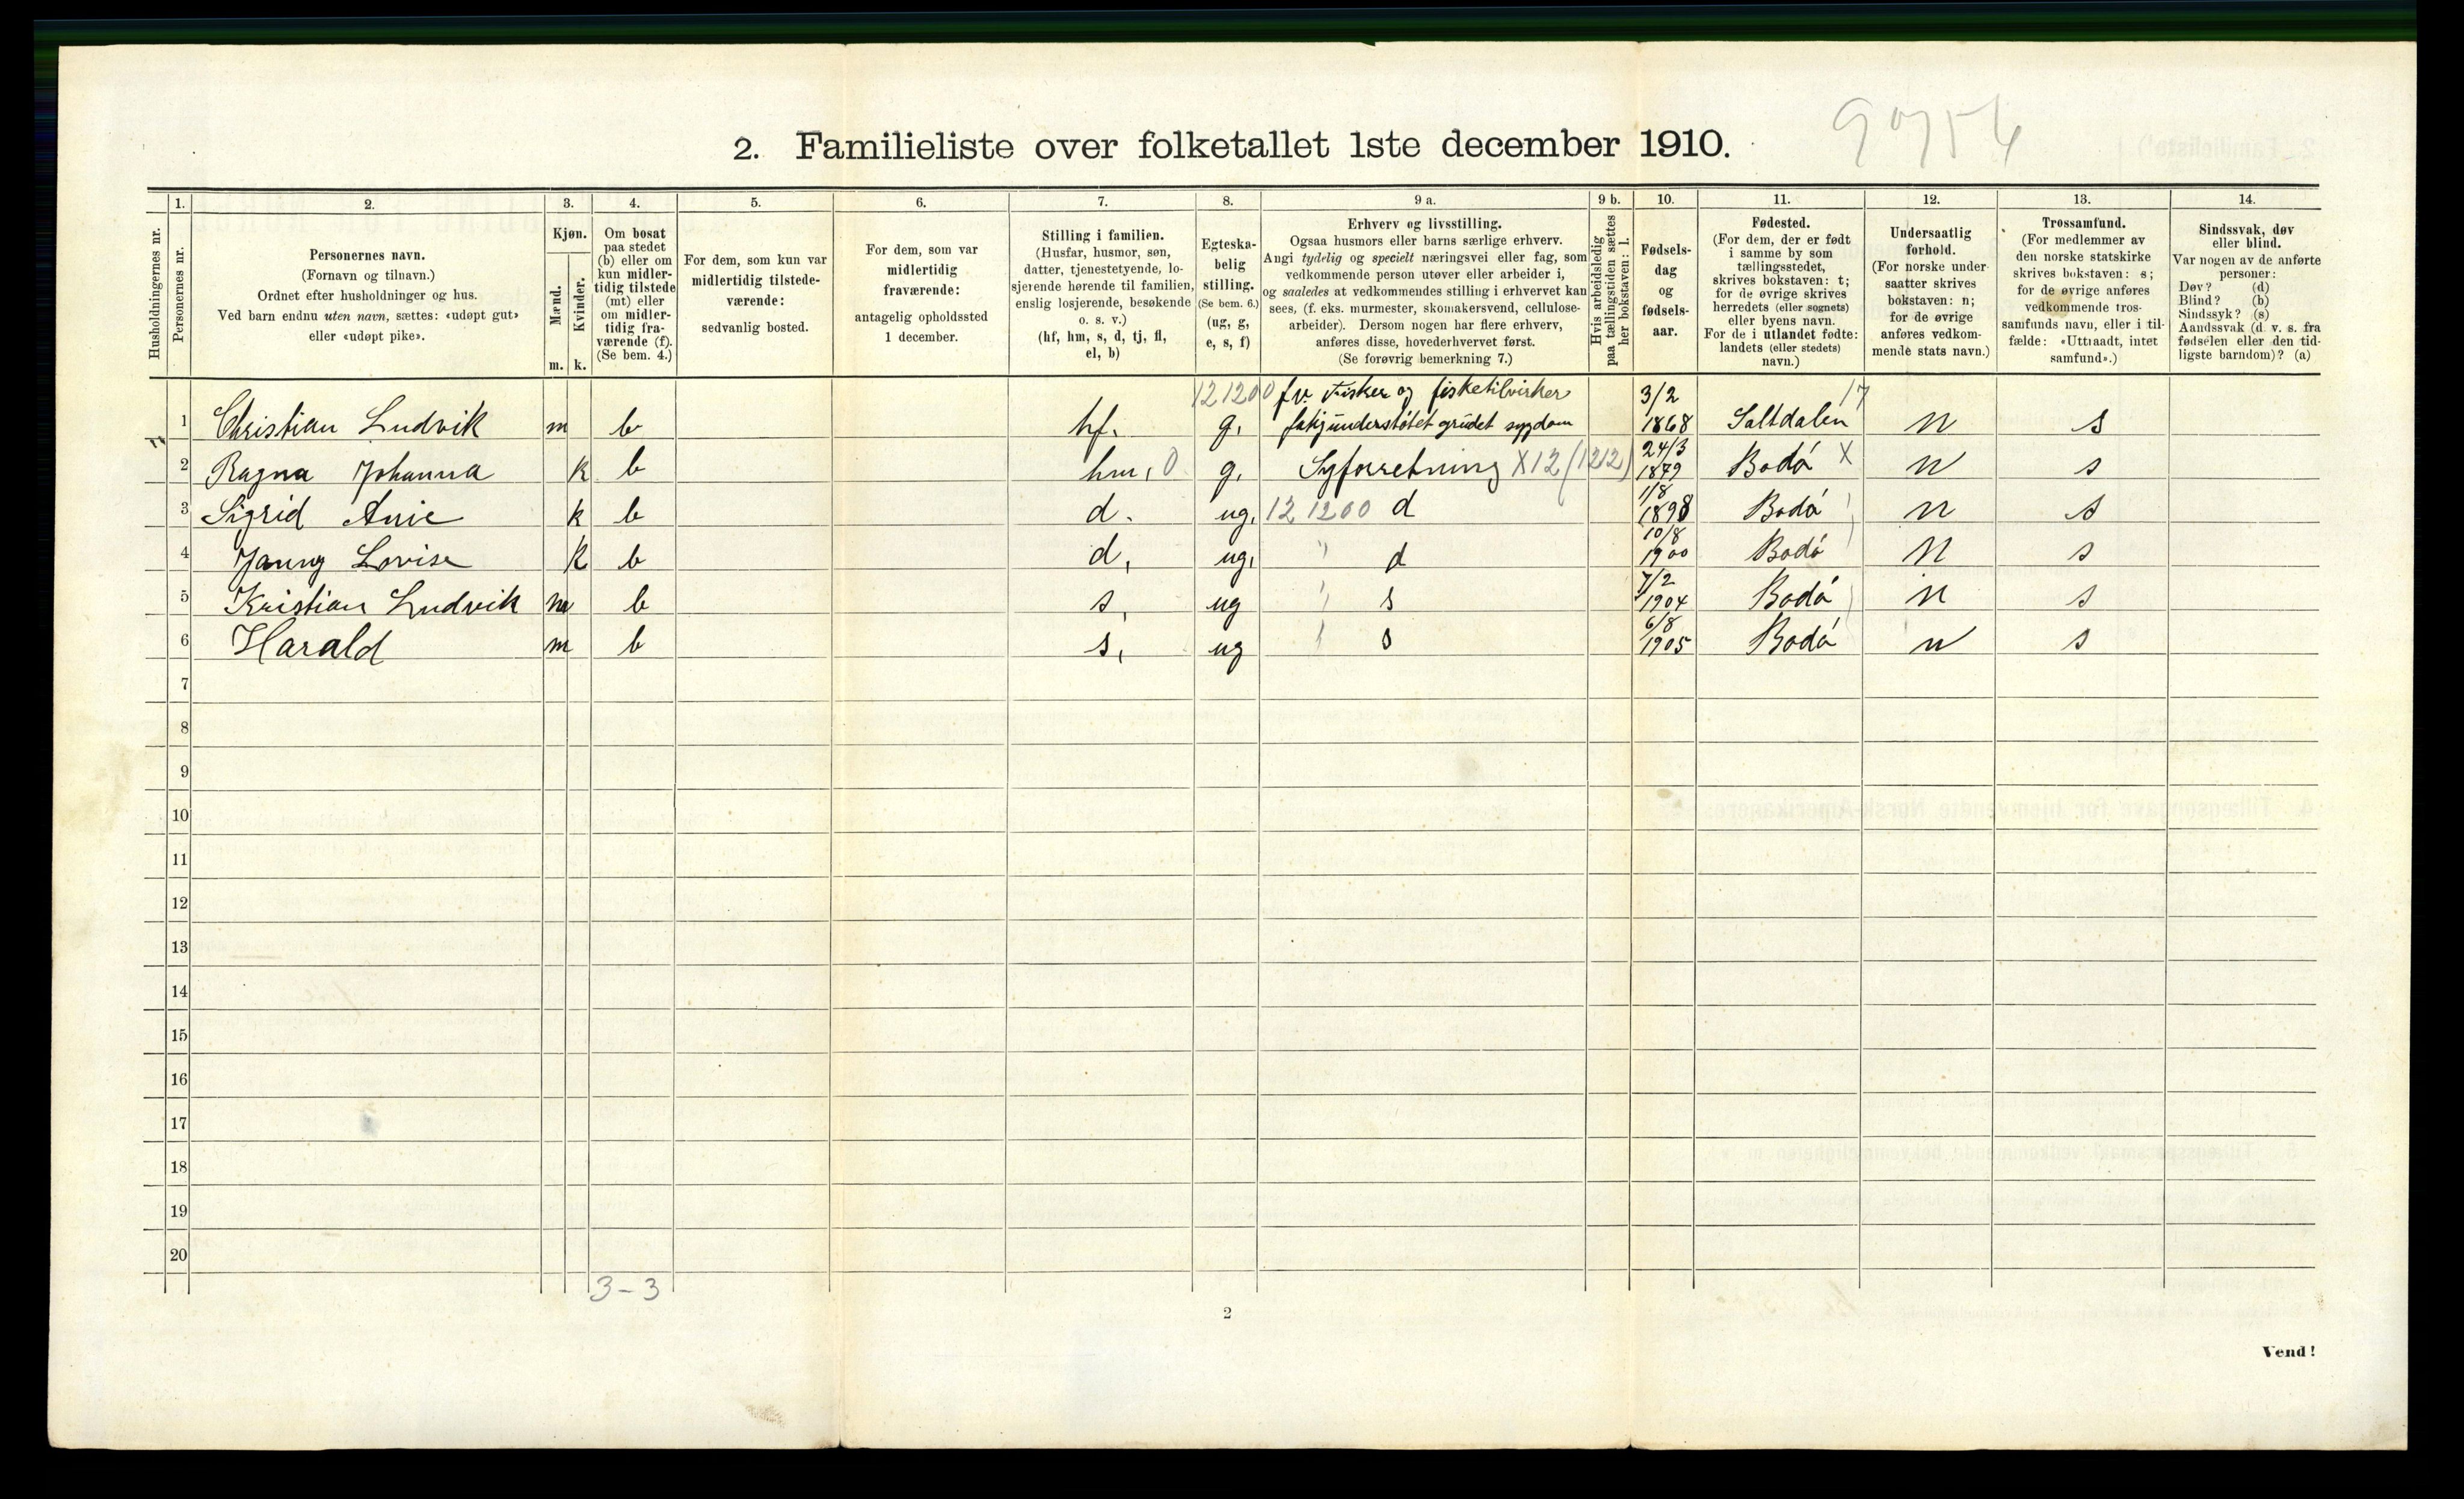 9754
2. Familieliste over folketallet 1ste december 1910.
1. 2. 3. 4. 5. 6. 7. 8. 9 a. 9 b. 10. 11. 12. 13. 14.
Husholdningernes nr.
Personernes nr.
Personernes navn.
(Fornavn og tilnavn.)
Ordnet efter husholdninger og hus.
Ved barn endnu uten navn, sættes: «udøpt gut»
eller «udøpt pike».
Kjøn.
Mænd.
Kvinder.
m. k.
Om bosat
paa stedet
(b) eller om
kun midler-
tidig tilstede
(mt) eller
om midler-
tidig fra-
værende (f).
(Se bem. 4.)
For dem, som kun var
midlertidig tilstede-
værende:
sedvanlig bosted.
For dem, som var
midlertidig
fraværende:
antagelig opholdssted
1 december.
Stilling i familien.
(Husfar, husmor, søn,
datter, tjenestetyende, lo-
sjerende hørende til familien,
enslig losjerende, besøkende
o. s. v.)
(hf, hm, s, d, tj, fl,
el, b)
Egteska-
belig
stilling.
(Se bem. 6.)
(ug, g,
e, s, f)
Erhverv og livsstilling.
Ogsaa husmors eller barns særlige erhverv.
Angi tydelig og specielt næringsvei eller fag, som
vedkommende person utøver eller arbeider i,
og saaledes at vedkommendes stilling i erhvervet kan
sees, (f. eks. murmester, skomakersvend, cellulose-
arbeider). Dersom nogen har flere erhverv,
anføres disse, hovederhvervet først.
(Se forøvrig bemerkning 7.)
Hvis arbeidsledig
paa tællingstiden sættes
her bokstaven: l.
Fødsels-
dag
og
fødsels-
aar.
Fødested.
(For dem, der er født
i samme by som
tællingsstedet,
skrives bokstaven: t;
for de øvrige skrives
herredets (eller sognets)
eller byens navn.
For de i utlandet fødte:
landets (eller stedets)
navn.)
Undersaatlig
forhold.
(For norske under-
saatter skrives
bokstaven: n;
for de øvrige
anføres vedkom-
mende stats navn.)
Trossamfund.
(For medlemmer av
den norske statskirke
skrives bokstaven: s;
for de øvrige anføres
vedkommende tros-
samfunds navn, eller i til-
fælde: «Uttraadt, intet
samfund».)
Sindssvak, døv
eller blind.
Var nogen av de anførte
personer:
Døv? (d)
Blind? (b)
Sindssyk? (s)
Aandssvak (d. v. s. fra
fødselen eller den tid-
ligste barndom)? (a)
121200 fv. Fisker og fisketilvirker 3/2 17
1 Christian Ludvik m b hf. g. fatigunderstøtet grúdet sygdom 1868 Saltdalen n s
2 Ragna Johanna k b hm, 0 g. Syforretning X12 (1212) 24/3 1879 Bodó X n s
3 Sigrid Anie k b d. ug. 12 1200 d 1/8 1898 Bodó n s
4 Janny Lovise k b d, ug, " d 10/8 1900 Bodó n s
5 Kristian Ludvik m b s, ug " s 7/2 1904 Bodó n s
6 Harald m b s, ug s 6/8 1905 Bodó n s
7
8
9
10
11
12
13
14
15
16
17
18
19
20
3-3
2
Vend!